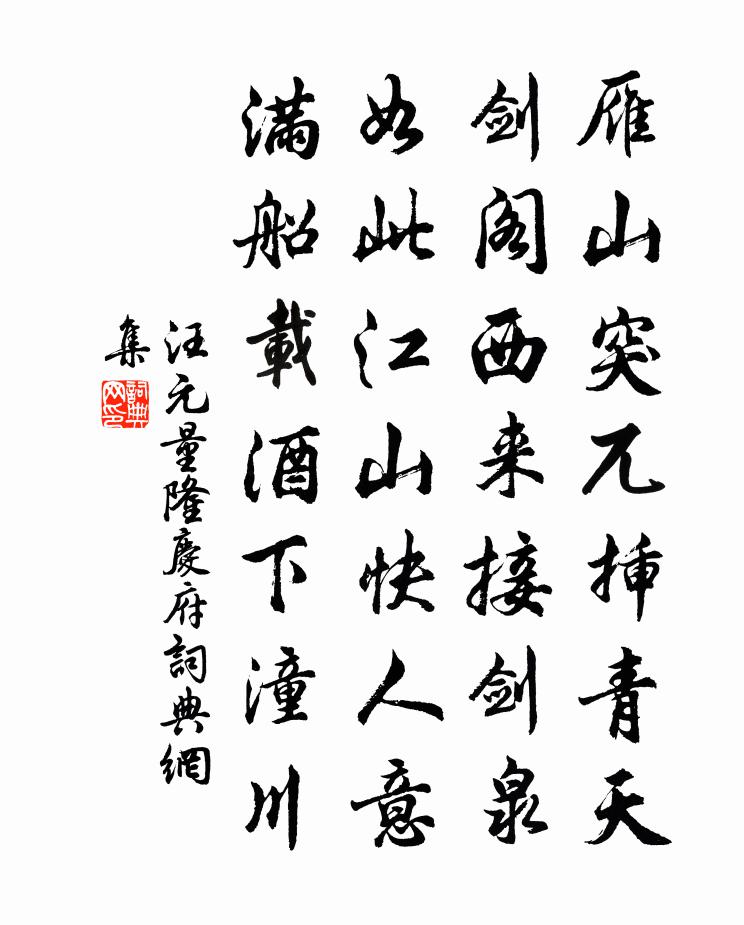 雁山突兀插青天
剑阁西来接剑泉
如此江山快人意
满船载酒下潼川
汪元量隆慶府詞典網
集
詞典網印